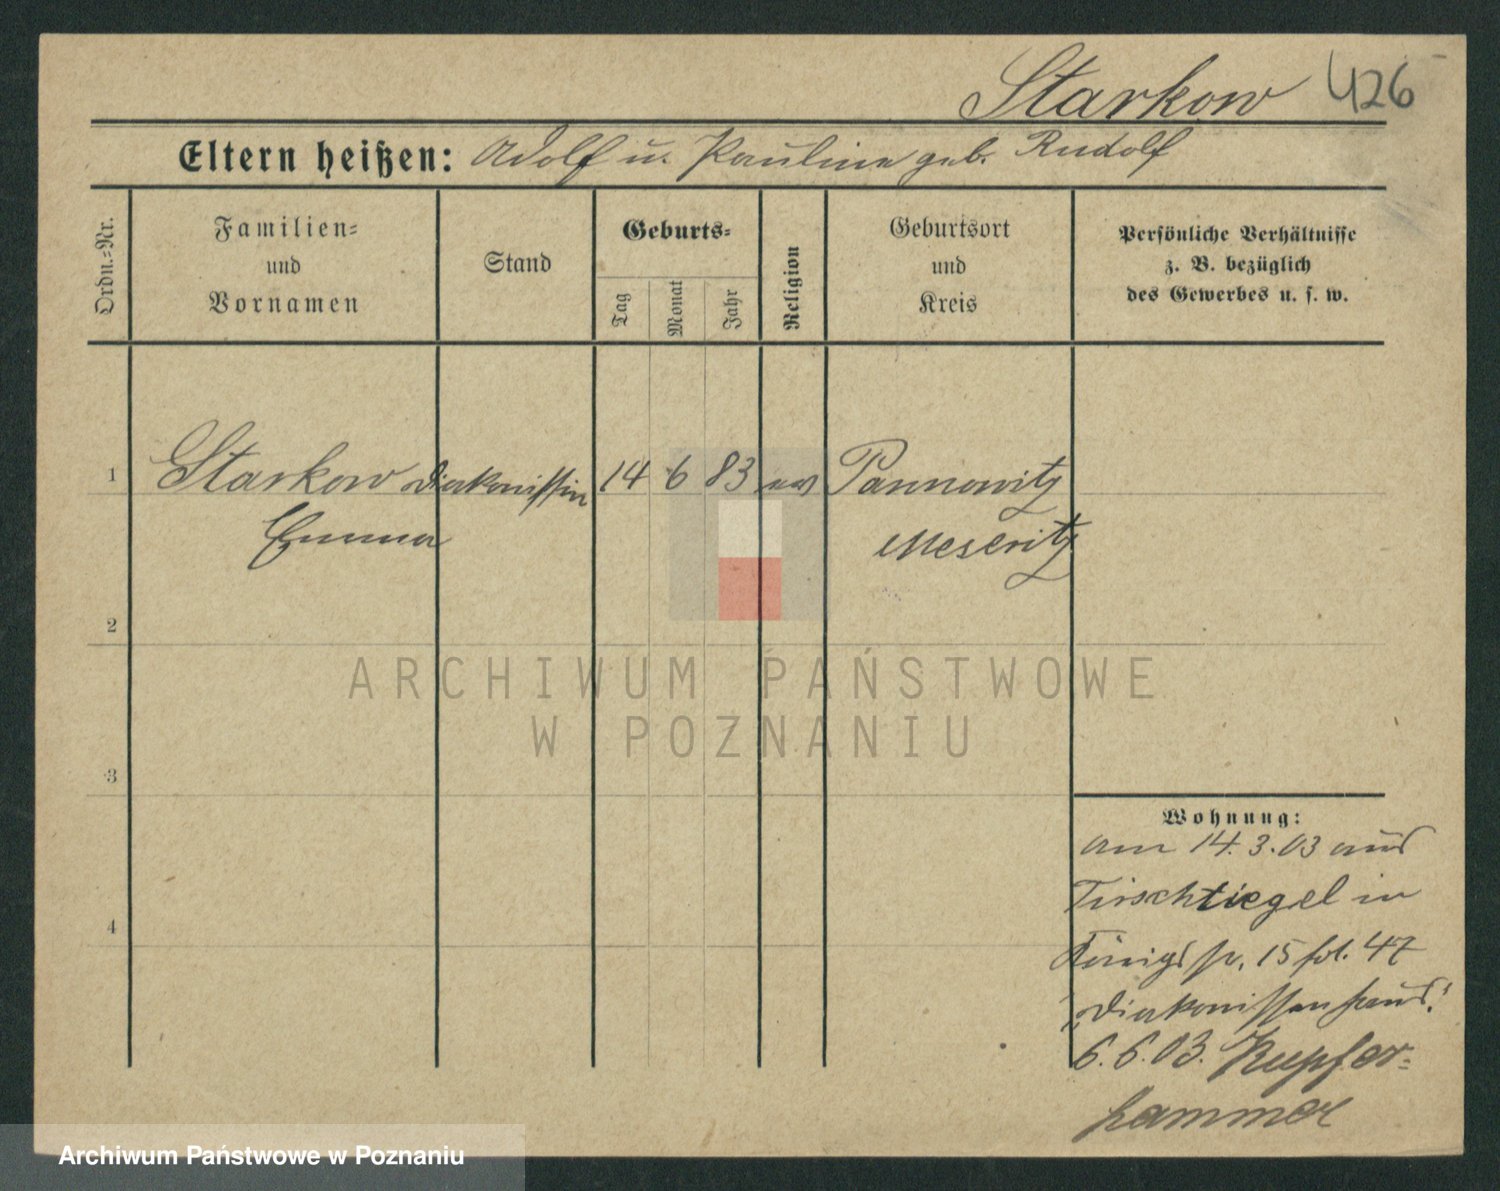 Starkow 426
Eltern heißen: Adolf u. Pauline geb. Rudolf
Ordn.=Nr.
Familien=
und
Vornamen
Stand
Geburts=
Tag
Monat
Jahr
Religion
Geburtsort
und
Kreis
Persönliche Verhältnisse
z. B. bezüglich
des Gewerbes u. s. w.
1 Starkow Diakonissin 14 6 83 ev Pannowitz
Emma Meseritz
2
3
4
Wohnung:
am 14.3.03 aus
Tirschtiegel in
Königspl. 15 fol. 47
"Diakonissenhaus"
6.6.03. Kupfer=
hammer
ARCHIWUM PAŃSTWOWE
W POZNANIU
Archiwum Państwowe w Poznaniu